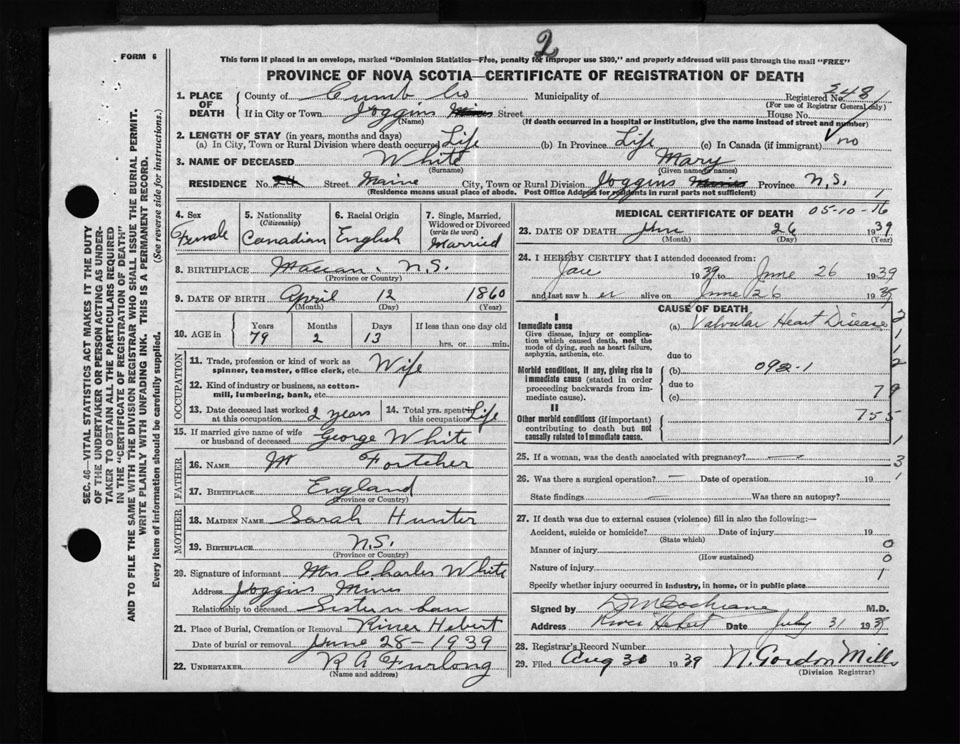 2
FORM 6
This form if placed in an envelope, marked "Dominion Statistics—Free, penalty for improper use $300," and properly addressed will pass through the mail "FREE"
PROVINCE OF NOVA SCOTIA—CERTIFICATE OF REGISTRATION OF DEATH
SEC. 46—VITAL STATISTICS ACT MAKES IT THE DUTY
OF THE UNDERTAKER OR PERSON ACTING AS UNDER-
TAKER TO OBTAIN ALL THE PARTICULARS REQUIRED
IN THE "CERTIFICATE OF REGISTRATION OF DEATH"
AND TO FILE THE SAME WITH THE DIVISION REGISTRAR WHO SHALL ISSUE THE BURIAL PERMIT.
WRITE PLAINLY WITH UNFADING INK. THIS IS A PERMANENT RECORD.
Every item of Information should be carefully supplied. (See reverse side for instructions.)
1. PLACE OF DEATH County of Cumb Co Municipality of Registered No. 348
(For use of Registrar General only)
If in City or Town Joggins Mines Street House No.
(Name) (If death occurred in a hospital or institution, give the name instead of street and number)
2. LENGTH OF STAY (in years, months and days)
(a) In City, Town or Rural Division where death occurred Life (b) In Province Life (c) In Canada (if immigrant) no
3. NAME OF DECEASED White Mary
(Surname) (Given name or names)
RESIDENCE No. Street Maine City, Town or Rural Division Joggins Mines Province N.S.
(Residence means usual place of abode. Post Office Address for residents in rural parts not sufficient)
4. Sex Female
5. Nationality (Citizenship) Canadian
6. Racial Origin English
7. Single, Married, Widowed or Divorced (write the word) Married
8. BIRTHPLACE Maccan, N.S.
(Province or Country)
9. DATE OF BIRTH April 12 1860
(Month) (Day) (Year)
10. AGE in Years 79 Months 2 Days 13 If less than one day old hrs. or min.
OCCUPATION
11. Trade, profession or kind of work as spinner, teamster, office clerk, etc. Wife
12. Kind of industry or business, as cotton-mill, lumbering, bank, etc.
13. Date deceased last worked at this occupation 2 years
14. Total yrs. spent in this occupation Life
15. If married give name of wife or husband of deceased George White
FATHER
16. NAME Fortcher
17. BIRTHPLACE England
(Province or Country)
MOTHER
18. MAIDEN NAME Sarah Hunter
19. BIRTHPLACE N.S.
(Province or Country)
20. Signature of informant Mrs Charles White
Address Joggins Mines
Relationship to deceased Sister n law
21. Place of Burial, Cremation or Removal River Hebert
Date of burial or removal June 28 - 1939
22. UNDERTAKER R A Furlong
(Name and address)
MEDICAL CERTIFICATE OF DEATH 05-10-16
23. DATE OF DEATH June 26 1939
(Month) (Day) (Year)
24. I HEREBY CERTIFY that I attended deceased from:
Jan 1939 to June 26 1939
and last saw h er alive on June 26 1939
CAUSE OF DEATH
I
Immediate cause
Give disease, injury or complication which caused death, not the mode of dying, such as heart failure, asphyxia, asthenia, etc.
(a) Valvular Heart Disease
due to
Morbid conditions, if any, giving rise to immediate cause (stated in order proceeding backwards from immediate cause).
(b) 092-1
due to
(c) 79
II
Other morbid conditions (if important) contributing to death but not causally related to immediate cause.
755
25. If a woman, was the death associated with pregnancy? —
26. Was there a surgical operation? — Date of operation 19
State findings — Was there an autopsy?
27. If death was due to external causes (violence) fill in also the following:—
Accident, suicide or homicide? Date of injury 19
(State which)
Manner of injury 0
(How sustained) 0
Nature of injury 1
Specify whether injury occurred in industry, in home, or in public place
Signed by D M Cochrane M.D.
Address River Hebert Date July 31 1939
28. Registrar's Record Number
29. Filed Aug 30 1939 N. Gordon Mills
(Division Registrar)